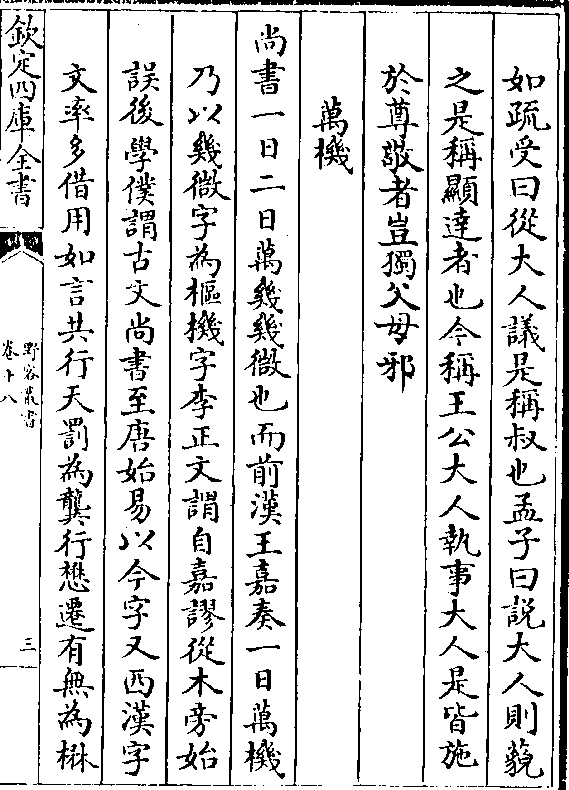 如疏受曰從大人議是稱叔也孟子曰說大人則藐
之是稱顯達者也今稱王公大人執事大人是皆施
於尊敬者豈獨父母邪
萬機
尚書一日二日萬幾幾微也而前漢王嘉奏一日萬機
乃以幾微字為樞機字李正文謂自嘉謬從木旁始
誤後學僕謂古文尚書至唐始易以今字又西漢字
文率多借用如言共行天罰為龔行懋遷有無為楙
欽定四庫全書
野客叢書
卷十八
三